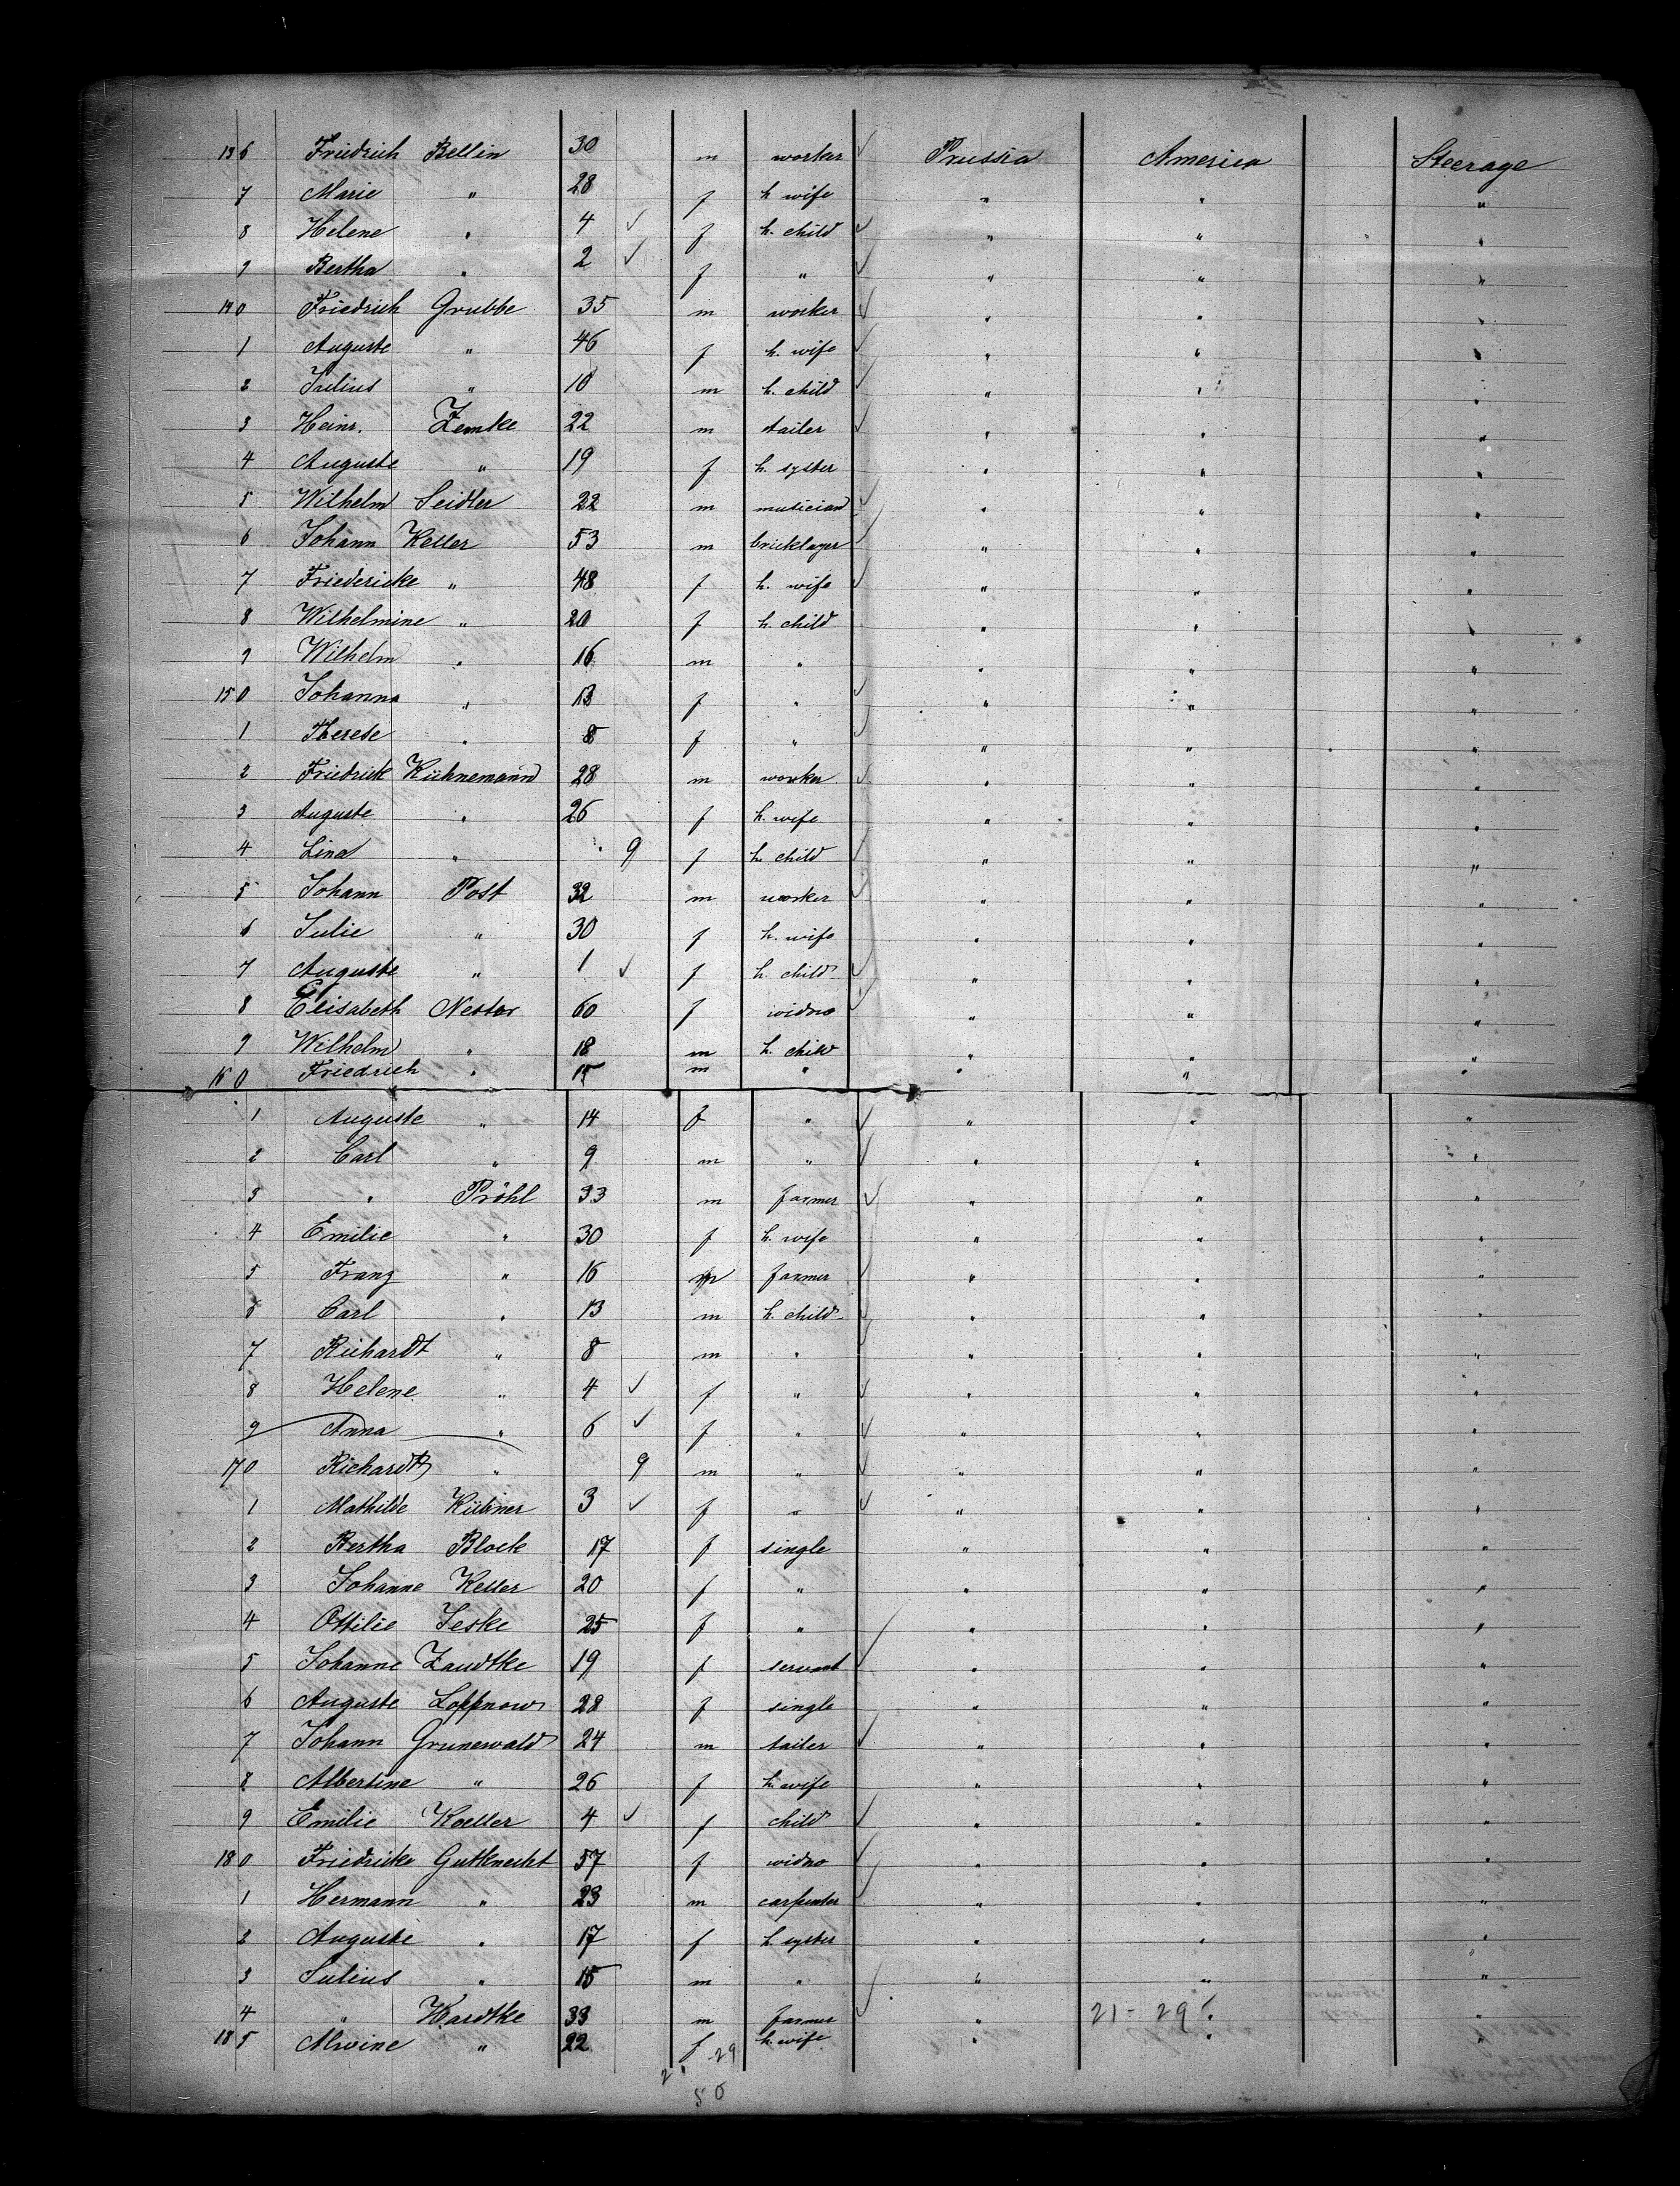 136 Friedrich Bellin 30 m worker ✓ Prussia America Steerage
7 Marie " 28 f h wife " " "
8 Helene " 4 ✓ f h. child ✓ " " "
9 Bertha " 2 ✓ f " ✓ " " "
140 Friedrich Grubbe 35 m worker ✓ " " "
1 Auguste " 46 f h. wife ✓ " " "
2 Julius " 10 m h. child ✓ " " "
3 Heinr. Zemke 22 m tailer ✓ " " "
4 Auguste " 19 f h. syster " " "
5 Wilhelm Seidler 22 m musician ✓ " " "
6 Johann Keller 53 m bricklayer ✓ " " "
7 Friedericke " 48 f h. wife ✓ " " "
8 Wilhelmine " 20 f h. child " " "
9 Wilhelm " 16 m " " " "
150 Johanna " 13 f " ✓ " " "
1 Therese " 8 f " ✓ " " "
2 Friedrich Kühnemann 28 m worker ✓ " " "
3 Auguste " 26 f h. wife " " "
4 Lina " 9 f h. child ✓ " " "
5 Johann Post 32 m worker ✓ " " "
6 Julie " 30 f h. wife " " "
7 Auguste " 1 ✓ f h. child ✓ " " "
8 Elisabeth Nestor 60 f widno ✓ " " "
9 Wilhelm " 18 m h. child " " "
160 Friedrich " 15 m " " " "
1 Auguste " 14 f " ✓ " " "
2 Carl " 9 m " ✓ " " "
3 " Pröhl 33 m farmer ✓ " " "
4 Emilie " 30 f h. wife " " "
5 Franz " 16 m farmer ✓ " " "
6 Carl " 13 m h. child ✓ " " "
7 Richardt " 8 m " ✓ " " "
8 Helene " 4 ✓ f " ✓ " " "
9 Anna " 6 ✓ f " ✓ " " "
170 Richardt " 9 m " ✓ " " "
1 Mathilde Kübner 3 ✓ f " ✓ " " "
2 Bertha Block 17 f single " " "
3 Johanne Keller 20 f " " " "
4 Ottilie Jeske 25 f " ✓ " " "
5 Johanne Zaudtke 19 f servant ✓ " " "
6 Auguste Loppnow 28 f single " " "
7 Johann Grunewald 24 m tailer ✓ " " "
8 Albertine " 26 f h. wife " " "
9 Emilie Koeller 4 ✓ f child ✓ " " "
180 Friedricke Gutknecht 57 f widno ✓ " " "
1 Hermann " 23 m carpenter ✓ " " "
2 Auguste " 17 f h syster " " "
3 Julius " 15 m " ✓ " " "
4 " Hardtke 33 m farmer ✓ " 21-29 " "
185 Alwine " 22 f h. wife " " "
21 29
50